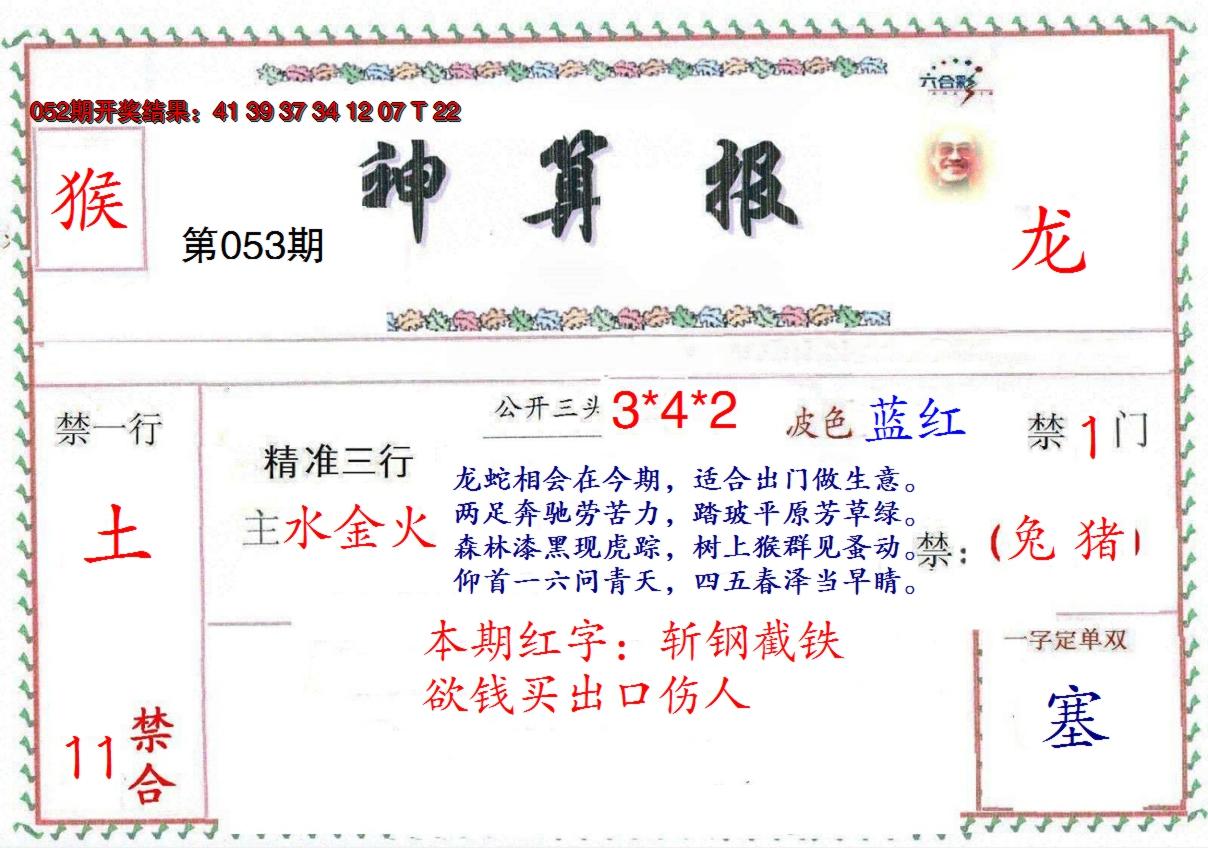 六合彩
052期开奖结果：41 39 37 34 12 07 T 22
神算报
猴
第053期
龙
禁一行
土
11
禁合
精准三行
主水金火
公开三头 3*4*2
波色 蓝红
禁1门
龙蛇相会在今期，适合出门做生意。
两足奔驰劳苦力，踏玻平原芳草绿。
森林漆黑现虎踪，树上猴群见蚤动。
仰首一六问青天，四五春泽当早晴。
禁：(兔 猪)
本期红字：斩钢截铁
欲钱买出口伤人
一字定单双
塞